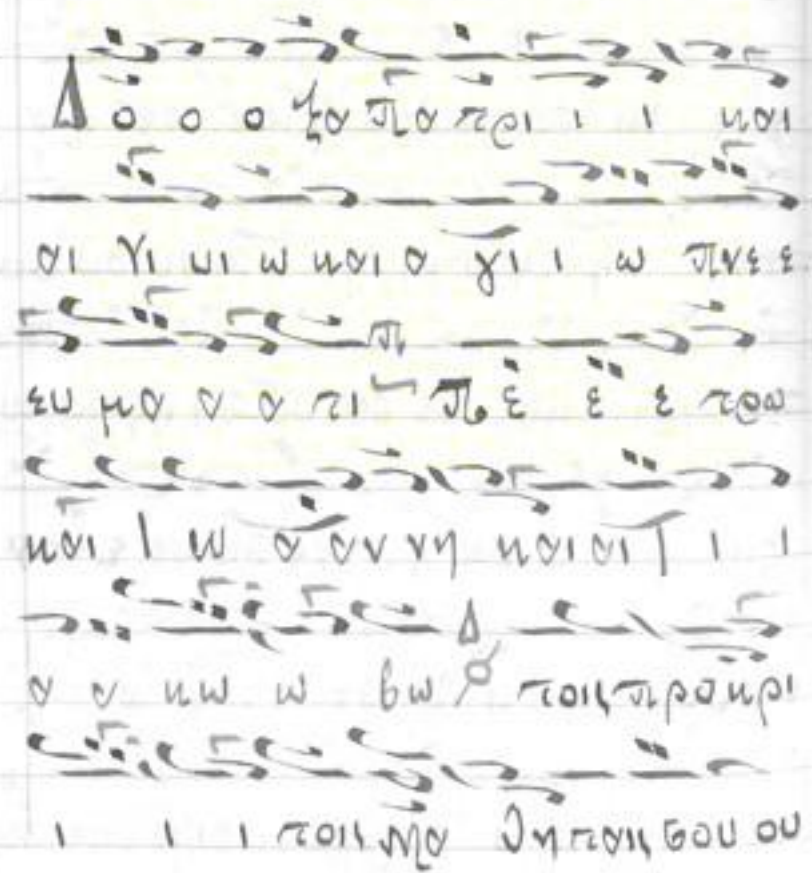 Δ ο ο ο ξα Πα τρι ι ι και
αι γι ω και α γι ι ω Πνε ε
ευ μα α α τι π Πε ε ε τρω
και Ι ω α αν νη και αι Ι ι ι
α α κω ω βω Δ τοις προ κρι
ι ι ι τοις Μα θη ταις σου ου